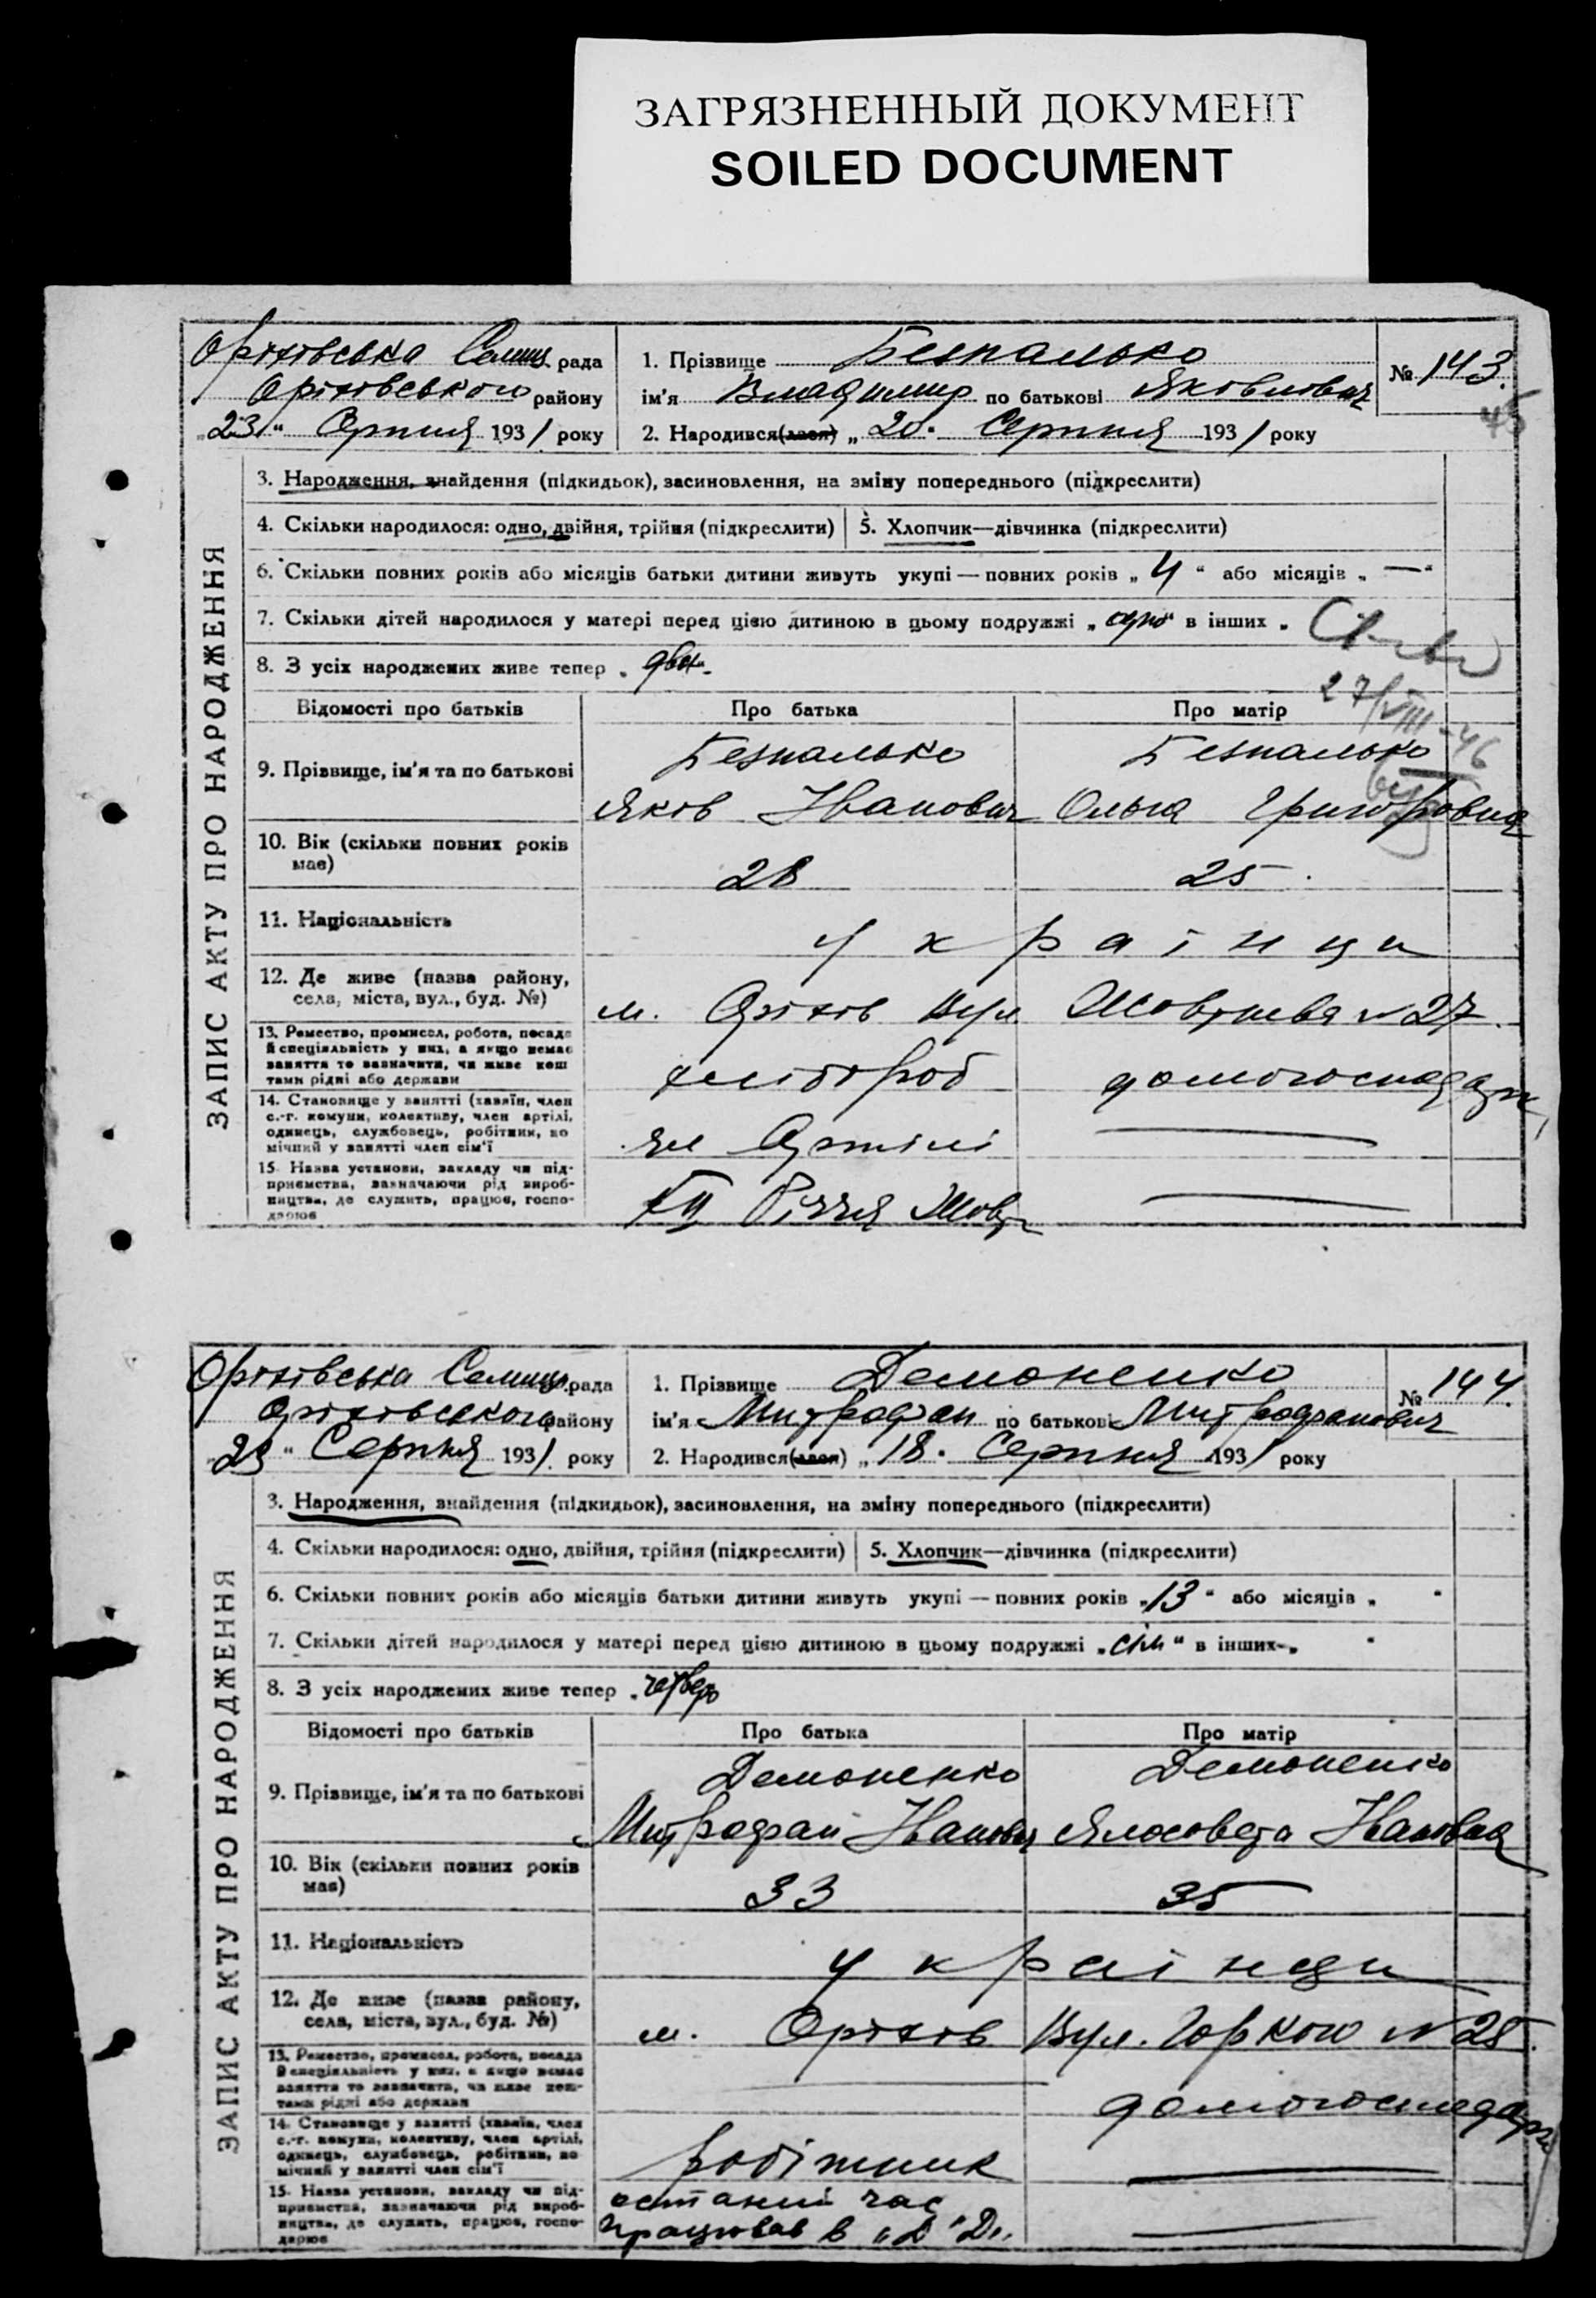 ЗАГРЯЗНЕННЫЙ ДОКУМЕНТ
SOILED DOCUMENT
Оріхівська Селищ. рада
Оріхівського району
„23“ Серпня 1931 року
1. Прізвище Безпалько
ім'я Владимир по батькові Яковлович
№ 143.
2. Народився(лася) „20. Серпня 1931 року
ЗАПИС АКТУ ПРО НАРОДЖЕННЯ
3. Народження, знайдення (підкидьок), засиновлення, на зміну попереднього (підкреслити)
4. Скільки народилося: одно, двійня, трійня (підкреслити) 5. Хлопчик—дівчинка (підкреслити)
6. Скільки повних років або місяців батьки дитини живуть укупі — повних років „4“ або місяців „—“
7. Скільки дітей народилося у матері перед цією дитиною в цьому подружжі „одно“ в інших „
8. З усіх народжених живе тепер „двоє“
27/VIII-46
Відомості про батьків Про батька Про матір
9. Прізвище, ім'я та по батькові
Безпалько Безпалько
Яків Іванович Ольга Григоровна
10. Вік (скільки повних років має)
28 25
11. Національність
українци
12. Де живе (назва району, села, міста, вул., буд. №)
м. Оріхів Вул. Жовтнева №27
13. Ремество, промисел, робота, посада й спеціяльність у них, а якщо немає заняття то зазначити, чи живе коштами рідні або держави
хлібороб домогосподарк
14. Становище у занятті (хазяїн, член с.-г. комуни, колективу, член артілі, одинець, службовець, робітник, помічний у занятті член сім'ї
чл Артілі
15. Назва установи, закладу чи підприємства, зазначаючи рід виробництва, де служить, працює, господарює
XII Річчя Жовт
Оріхівська Селищ. рада
Оріхівського району
„23“ Серпня 1931 року
1. Прізвище Демоненко
ім'я Митрофан по батькові Митрофанович
№ 144.
2. Народився(лася) „18. Серпня 1931 року
ЗАПИС АКТУ ПРО НАРОДЖЕННЯ
3. Народження, знайдення (підкидьок), засиновлення, на зміну попереднього (підкреслити)
4. Скільки народилося: одно, двійня, трійня (підкреслити) 5. Хлопчик—дівчинка (підкреслити)
6. Скільки повних років або місяців батьки дитини живуть укупі — повних років „13“ або місяців „ “
7. Скільки дітей народилося у матері перед цією дитиною в цьому подружжі „сім“ в інших „ “
8. З усіх народжених живе тепер „четверо
Відомості про батьків Про батька Про матір
9. Прізвище, ім'я та по батькові
Демоненко Демоненко
Митрофан Іванович Ялосовета Івановна
10. Вік (скільки повних років має)
33 35
11. Національність
українци
12. Де живе (назва району, села, міста, вул., буд. №)
м. Оріхів Вул. Горкого №25.
13. Ремество, промисел, робота, посада й спеціяльність у них, а якщо немає заняття то зазначити, чи живе коштами рідні або держави
домогосподарк
14. Становище у занятті (хазяїн, член с.-г. комуни, колективу, член артілі, одинець, службовець, робітник, помічний у занятті член сім'ї
робітник
15. Назва установи, закладу чи підприємства, зазначаючи рід виробництва, де служить, працює, господарює
останній час
працював в „Д“